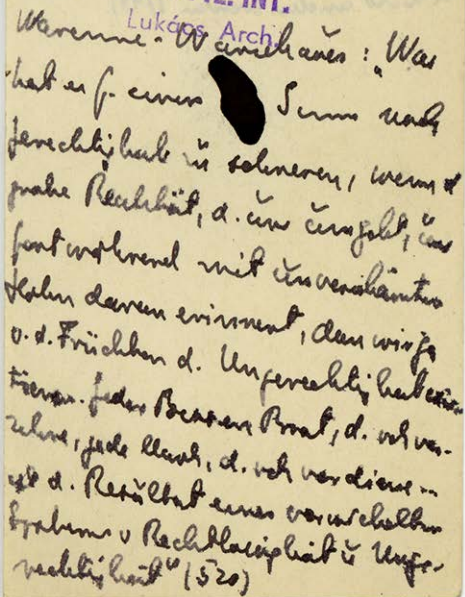 Z. INT.
Lukács Arch.
Warenne-Warschauer: "Was
hat es f. einen Sinn nach
Gerechtigkeit zu schreien, wenn d
grobe Realität, d. uns umgibt, uns
fortwährend mit unverschämtem
Hohn daran erinnert, dass wir ja
v. d. Früchten d. Ungerechtigkeit
Jeder Bissen Brot, d. ich ver-
zehre, jede Mark, d. ich verdiene
ist d. Resultat eines verwickelten
Systems v Rechtlosigkeit u Unge-
rechtigkeit" (520)